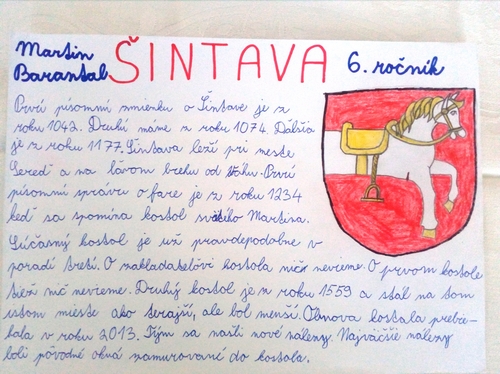 Martin
Barantal
ŠINTAVA
6. ročník
Prvú písomnú zmienku o Šintave je z
roku 1042. Druhú máme z roku 1074. Ďalšia
je z roku 1177. Šintava leží pri meste
Sereď a na ľavom brehu od Váhu. Prvú
písomnú správu o fare je z roku 1234
keď sa spomína kostol svätého Martina.
Súčasný kostol je už pravdepodobne v
poradí tretí. O zakladateľovi kostola nič nevieme. O prvom kostole
tiež nič nevieme. Druhý kostol je z roku 1559 a stál na tom
istom mieste ako terajší, ale bol menší. Obnova kostola prebe-
hala v roku 2013. Tým sa našli nové nálezy. Najväčšie nálezy
boli pôvodné okná zamurované do kostola.